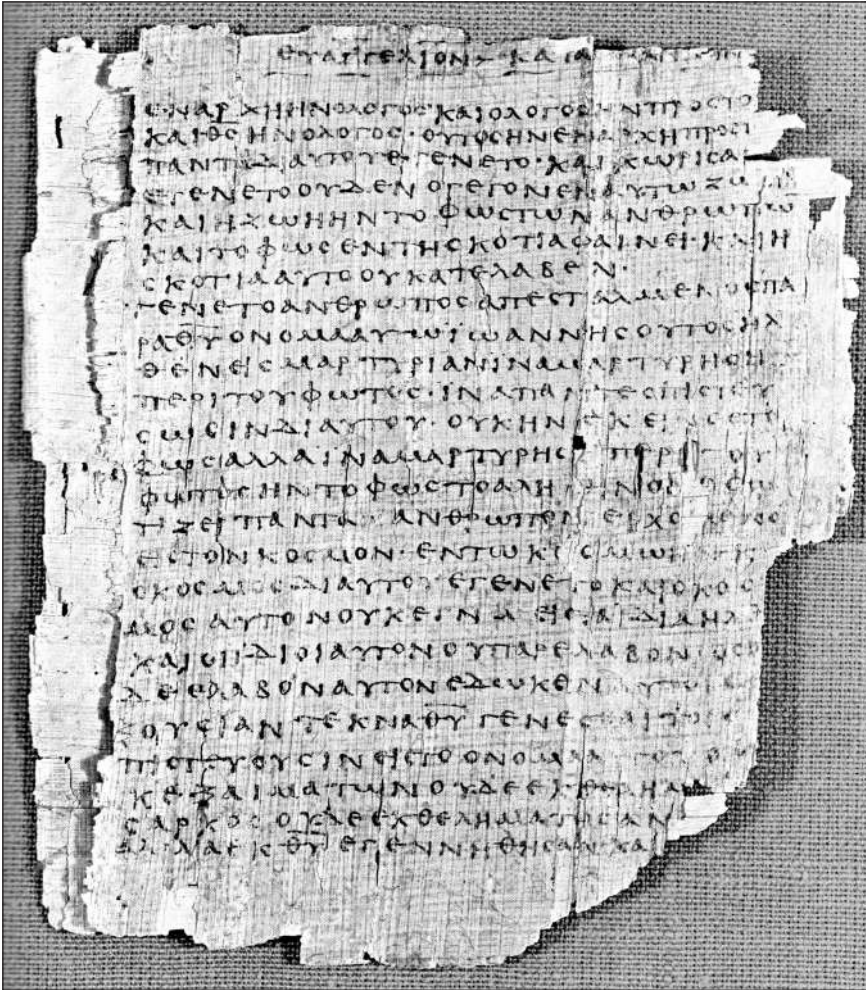 ΕΥΑΓΓΕΛΙΟΝ ΚΑΤΑ
ΕΝΑΡΧΗΗΝΟΛΟΓΟϹΚΑΙΟΛΟΓΟϹΗΝΠΡΟϹΤΟ
ΚΑΙΘ̅Ϲ̅ΗΝΟΛΟΓΟϹ·ΟΥΤΟϹΗΝΕΝΑΡΧΗΠΡΟϹΤ
ΠΑΝΤΑΔΙΑΥΤΟΥΕΓΕΝΕΤΟ·ΚΑΙΧΩΡΙϹΑ
ΕΓΕΝΕΤΟΟΥΔΕΝΟΓΕΓΟΝΕΝΑΥΤΩΖΩ
ΚΑΙΗΖΩΗΗΝΤΟΦΩϹΤΩΝΑΝΘΡΩΠΩ̅
ΚΑΙΤΟΦΩϹΕΝΤΗϹΚΟΤΙΑΦΑΙΝΕΙ·ΚΑΙΗ
ϹΚΟΤΙΑΑΥΤΟΟΥΚΑΤΕΛΑΒΕΝ·
ΓΕΝΕΤΟΑΝΘΡΩΠΟϹΑΠΕϹΤΑΛΜΕΝΟϹΠΑ
ΡΑΘ̅Υ̅ΟΝΟΜΑΑΥΤΩΙΩΑΝΝΗϹΟΥΤΟϹΗΛ
ΘΕΝΕΙϹΜΑΡΤΥΡΙΑΝΙΝΑΜΑΡΤΥΡΗϹΗ
ΠΕΡΙΤΟΥΦΩΤΟϹ·ΙΝΑΠΑΝΤΕϹΠΙϹΤΕΥ
ϹΩϹΙΝΔΙΑΥΤΟΥ·ΟΥΚΗΝΕΚΕΙΝΟϹΤΟ
ΦΩϹΑΛΛΑΙΝΑΜΑΡΤΥΡΗϹΗΠΕΡΙΤΟΥ
ΦΩΤΟϹΗΝΤΟΦΩϹΤΟΑΛΗΘΙΝΟΝΟΦΩ
ΤΙΖΕΙΠΑΝΤΑΑΝΘΡΩΠΟΝΕΡΧΟΜΕΝΟ
ΕΙϹΤΟΝΚΟϹΜΟΝ·ΕΝΤΩΚΟϹΜΩΗΝΚΑΙ
ΟΚΟϹΜΟϹΔΙΑΥΤΟΥΕΓΕΝΕΤΟΚΑΙΟΚΟϹ
ΜΟϹΑΥΤΟΝΟΥΚΕΓΝΩΕΙϹΤΑΙΔΙΑΗΛΘ
ΚΑΙΟΙΙΔΙΟΙΑΥΤΟΝΟΥΠΑΡΕΛΑΒΟΝΟϹΟΙ
ΔΕΕΛΑΒΟΝΑΥΤΟΝΕΔΩΚΕΝΑΥΤΟΙϹΕ
ΞΟΥϹΙΑΝΤΕΚΝΑΘ̅Υ̅ΓΕΝΕϹΘΑΙΤΟΙϹ
ΠΙϹΤΕΥΟΥϹΙΝΕΙϹΤΟΟΝΟΜΑΑΥΤΟΥΟΙ
ΚΕΞΑΙΜΑΤΩΝΟΥΔΕΕΚΘΕΛΗΜΑ
ϹΑΡΚΟϹΟΥΔΕΕΚΘΕΛΗΜΑΤΟϹΑΝ
ΑΛΛΑΕΚΘ̅Υ̅ΕΓΕΝΝΗΘΗϹΑΝΚΑ